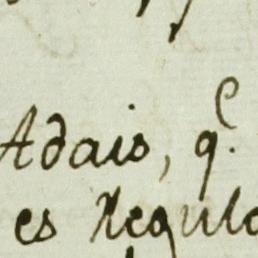 Adaio, q.e
es Regulo